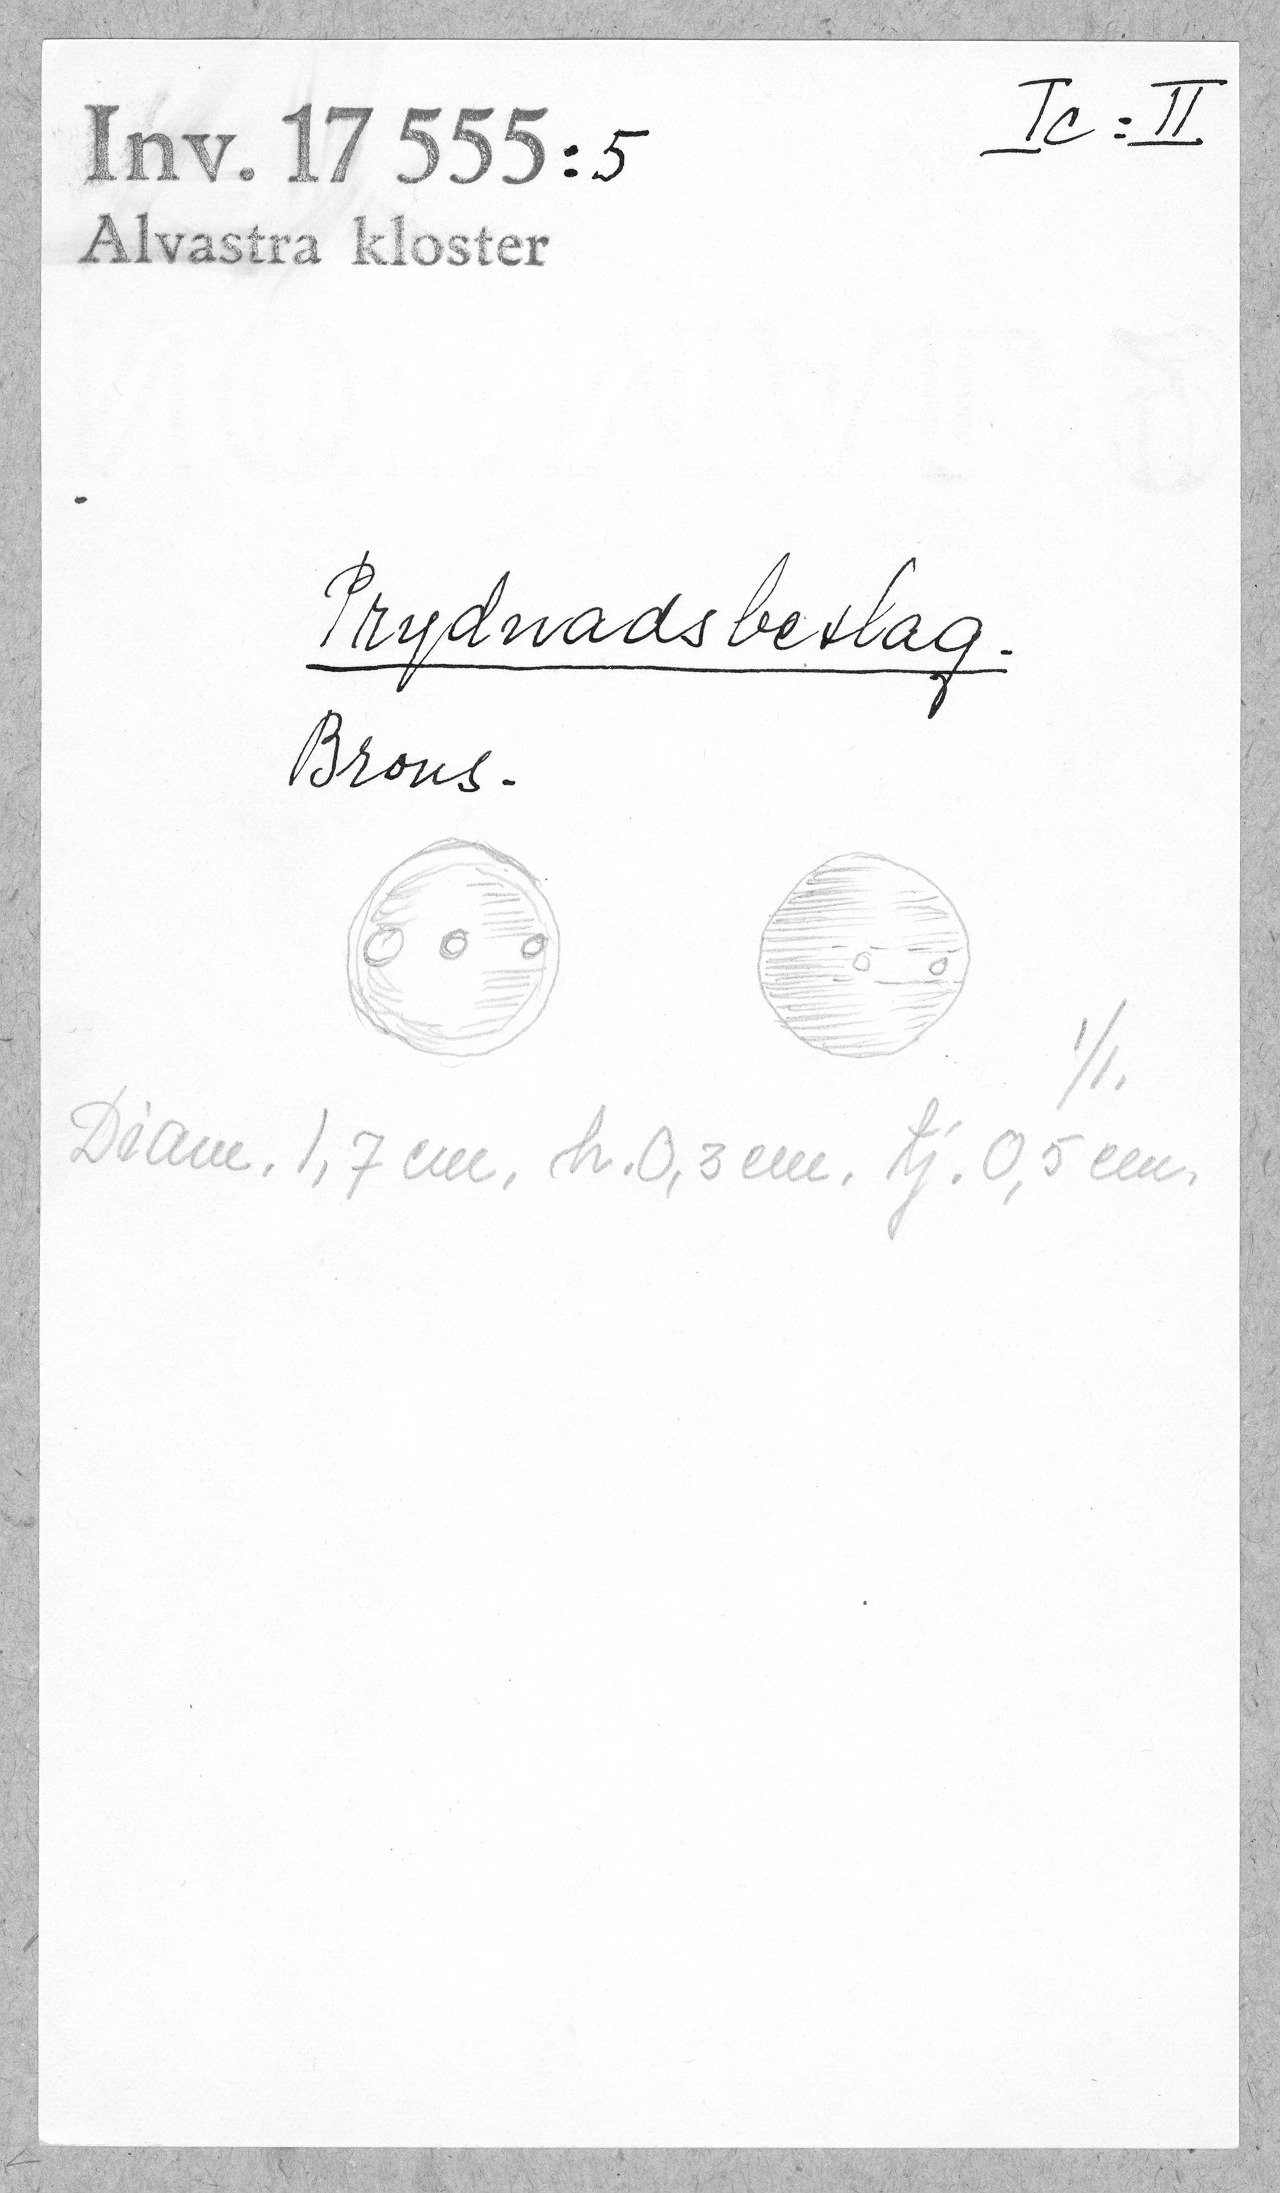 Inv. 17 555:5
Ic:II
Alvastra kloster
Prydnadsbeslag.
Brons.
1/1.
Diam. 1,7 cm, h. 0,3 cm. tj. 0,5 cm.